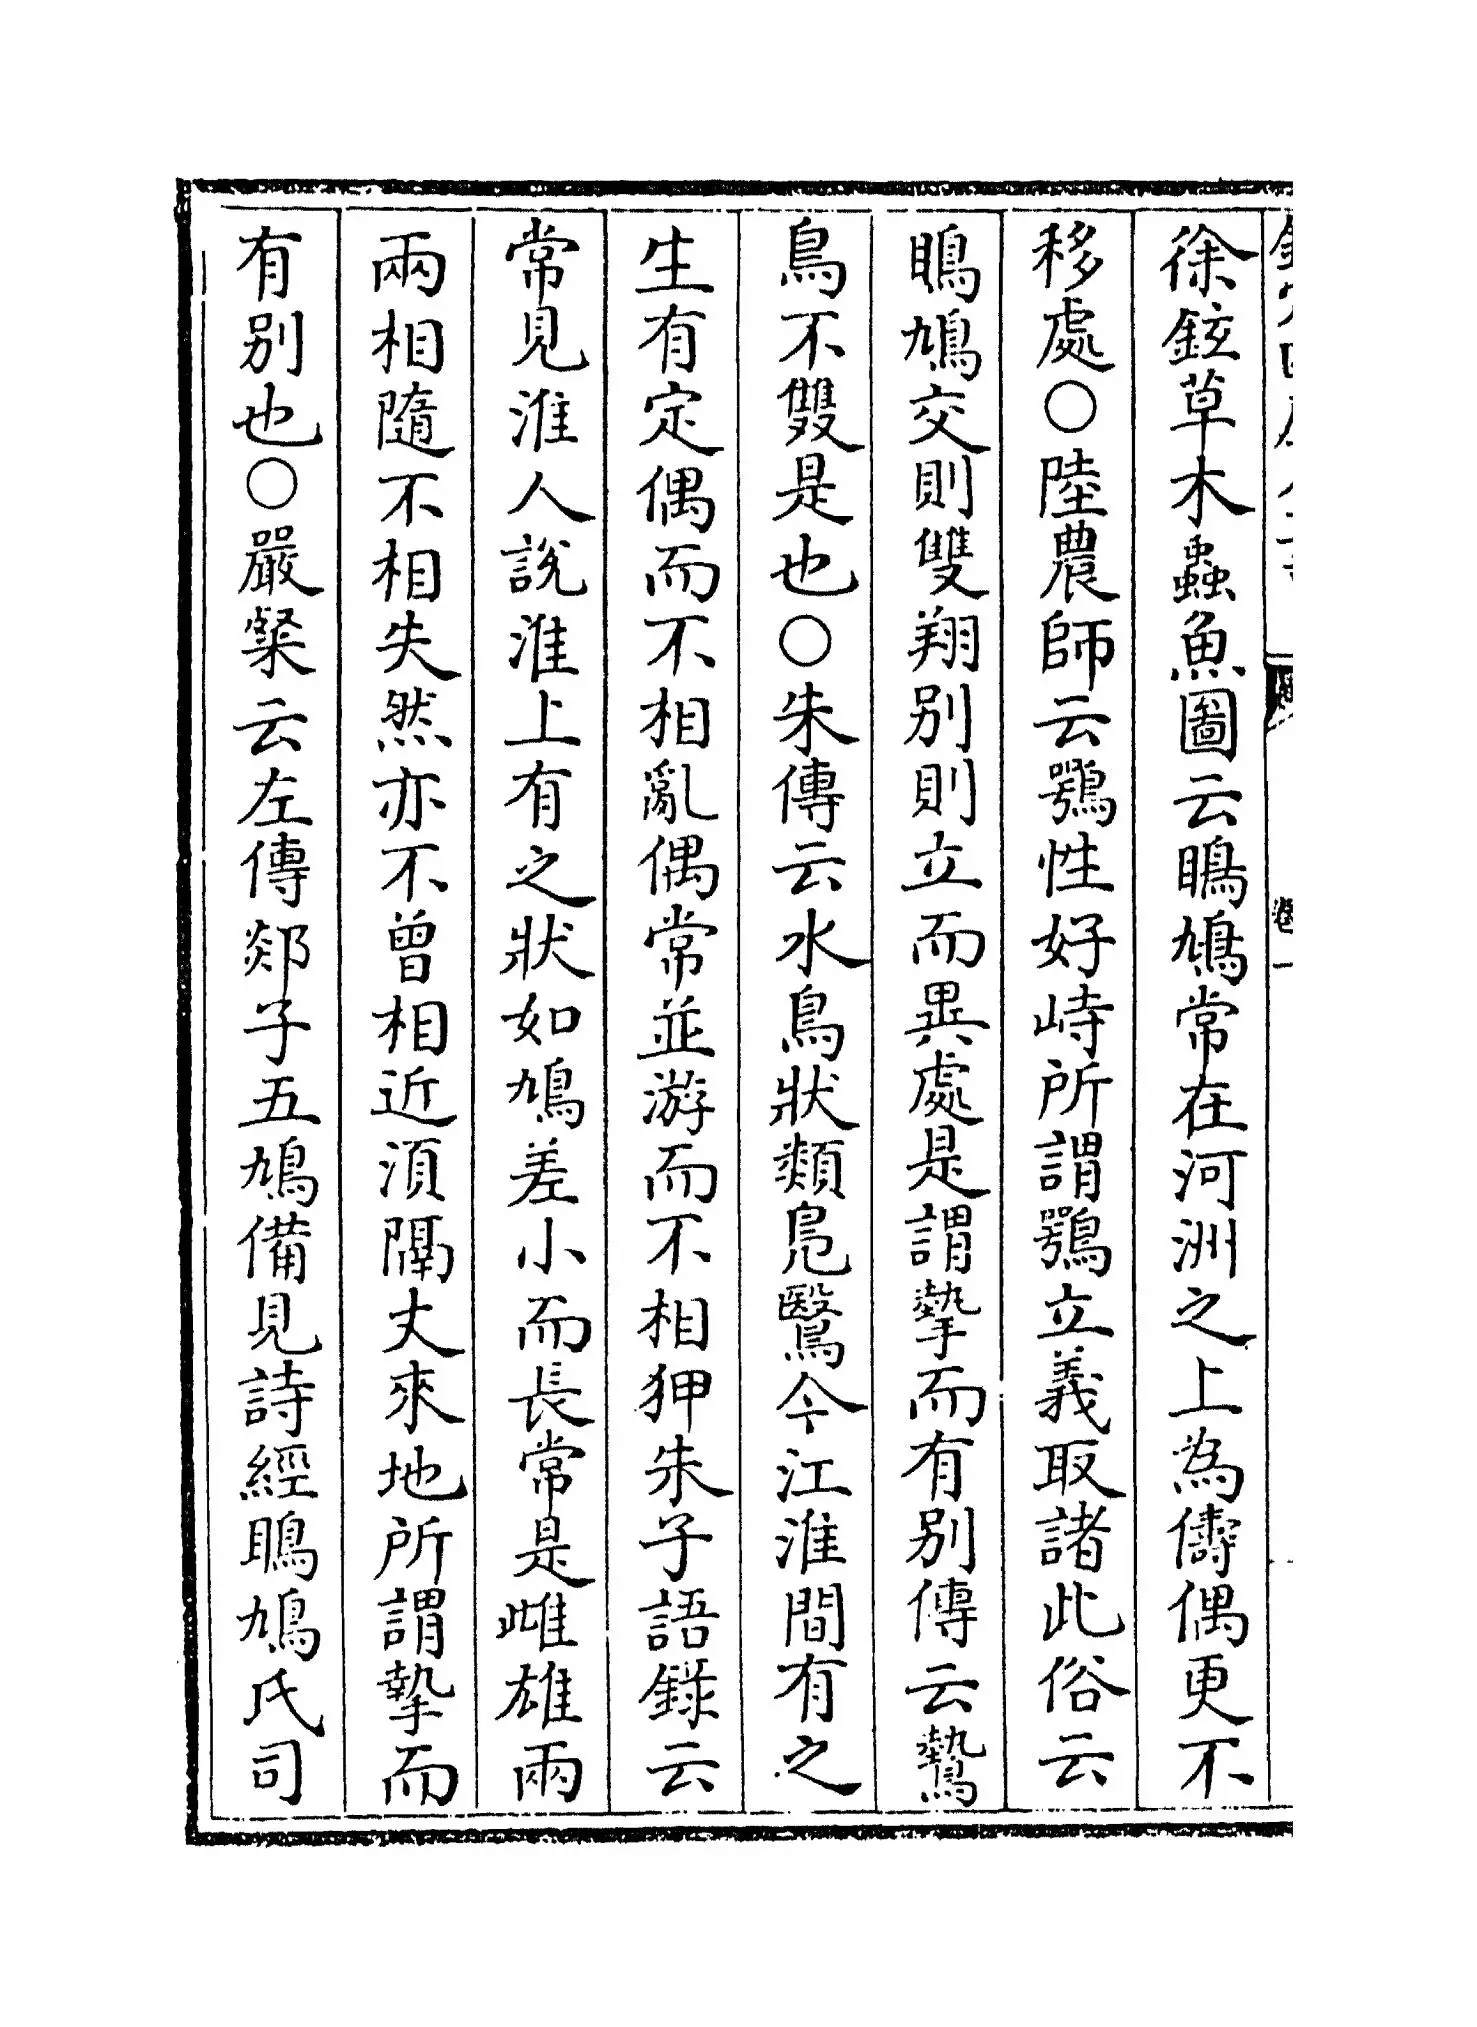 徐鉉草木蟲魚圖云鴡鳩常在河洲之上為儔偶更不
移處○陸農師云鶚性好峙所謂鶚立義取諸此俗云
鴡鳩交則雙翔別則立而異處是謂摯而有別傳云鷙
鳥不雙是也○朱傳云水鳥狀類鳧鷖今江淮間有之
生有定偶而不相亂偶常並游而不相狎朱子語錄云
常見淮人說淮上有之狀如鳩差小而長常是雌雄兩
兩相隨不相失然亦不曾相近須隔丈來地所謂摯而
有別也○嚴粲云左傳郯子五鳩備見詩經鴡鳩氏司
卷一